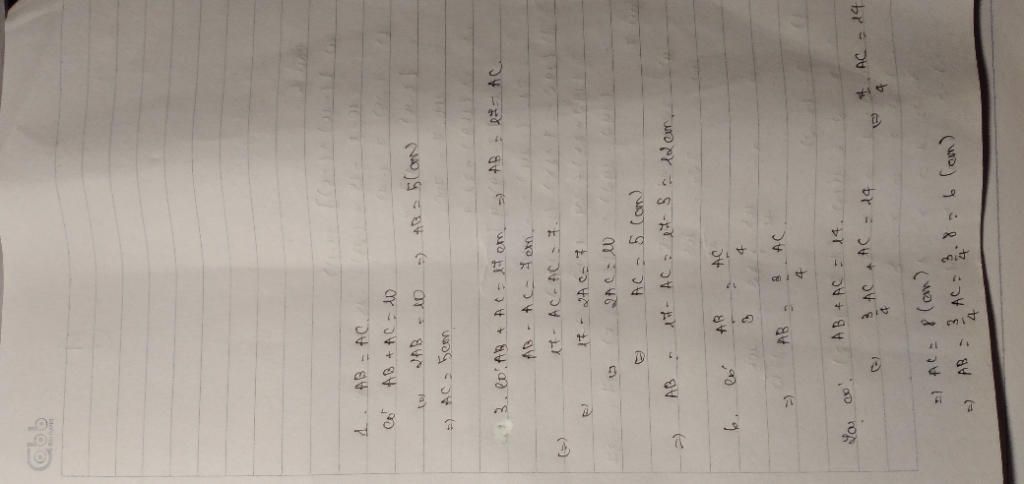 1. AB = AC.
có AB + AC = 10
(=) 2AB = 10 => AB = 5 (cm)
=) AC = 5cm
3. có: AB + AC = 17cm. => AB = 17 - AC.
AB - AC = 7cm.
(=) 17 - AC - AC = 7.
(=) 17 - 2AC = 7
(=) 2AC = 10
(=) AC = 5 (cm)
=) AB = 17 - AC = 17 - 5 = 12cm.
6. có AB/3 = AC/4
=) AB = 3/4 AC.
có: AB + AC = 14.
(=) 3/4 AC + AC = 14 (=) 7/4 AC = 14
=) AC = 8 (cm)
=) AB = 3/4 AC = 3/4 . 8 = 6 (cm)